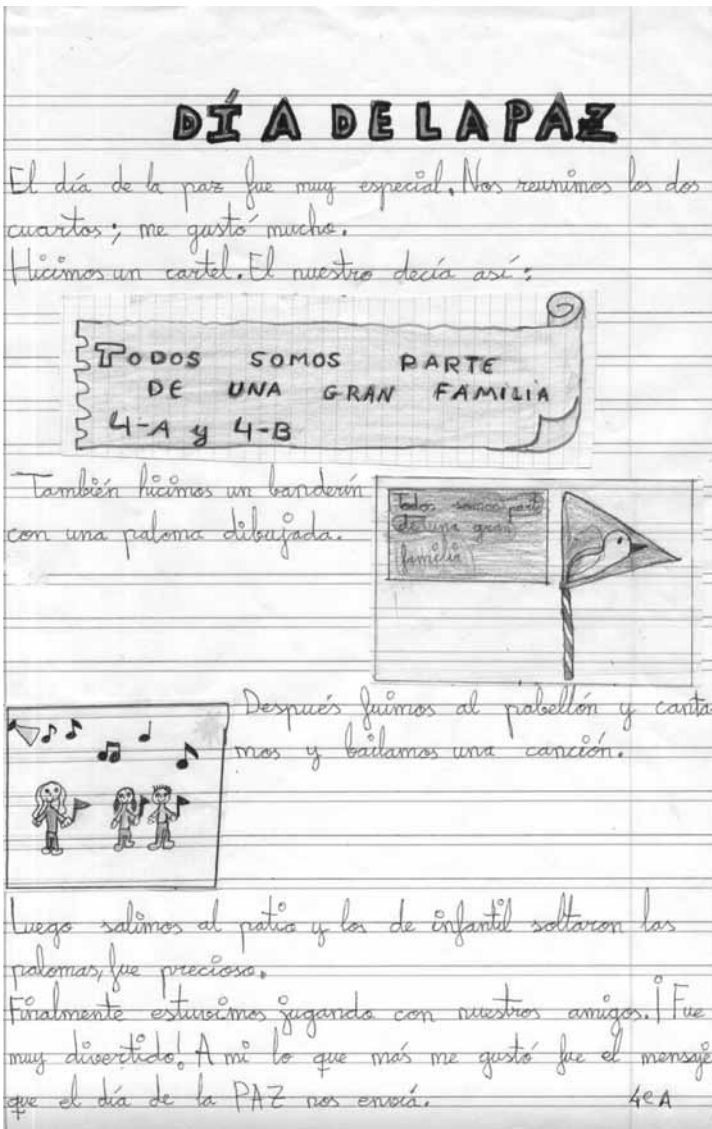 DÍA DE LA PAZ
El día de la paz fue muy especial. Nos reunimos los dos
cuartos; me gustó mucho.
Hicimos un cartel. El nuestro decía así:
TODOS SOMOS PARTE
DE UNA GRAN FAMILIA
4-A y 4-B
También hicimos un banderín
con una paloma dibujada.
Todos somos parte
de una gran
familia
Después fuimos al pabellón y canta-
mos y bailamos una canción.
Luego salimos al patio y los de infantil soltaron las
palomas, fue precioso.
Finalmente estuvimos jugando con nuestros amigos. ¡Fue
muy divertido! A mi lo que más me gustó fue el mensaje
que el día de la PAZ nos envía.
4º A